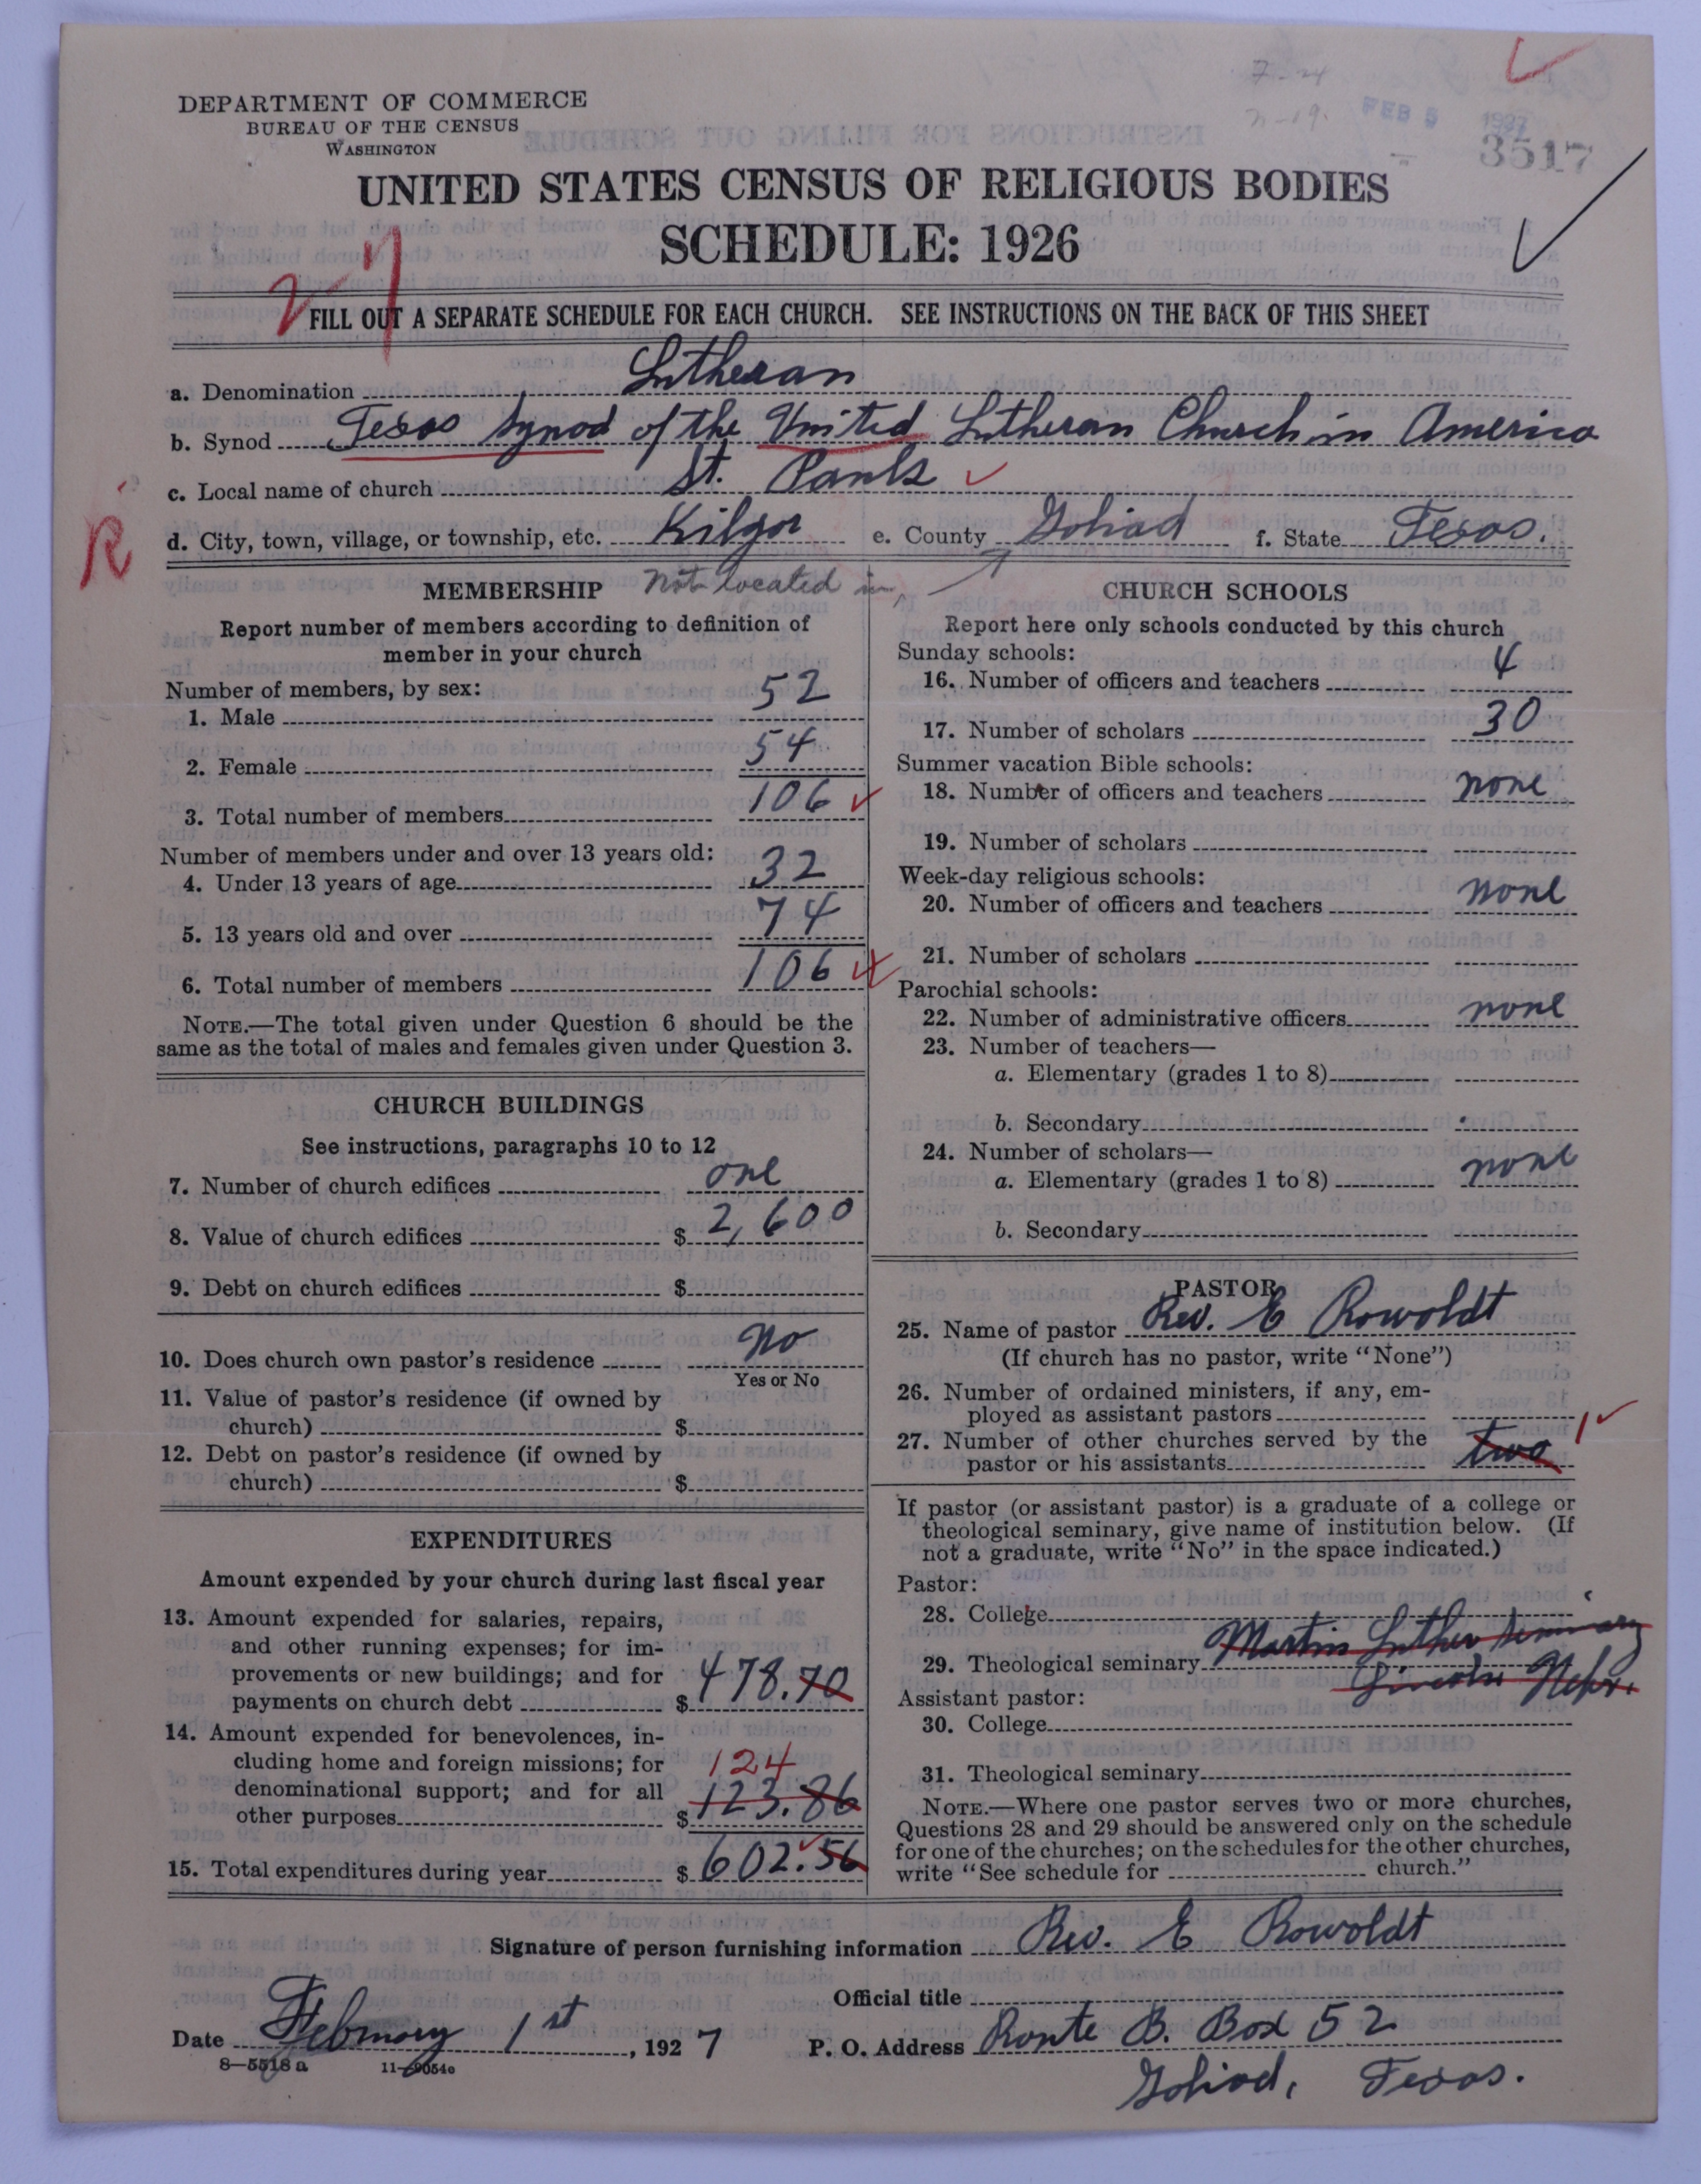 DEPARTMENT OF COMMERCE
BUREAU OF THE CENSUS
WASHINGTON
7-24
n-19.
FEB 5 1927
3517
UNITED STATES CENSUS OF RELIGIOUS BODIES
SCHEDULE: 1926
FILL OUT A SEPARATE SCHEDULE FOR EACH CHURCH. SEE INSTRUCTIONS ON THE BACK OF THIS SHEET
a. Denomination Lutheran
b. Synod Texas Synod of the United Lutheran Church in America
c. Local name of church St. Pauls
R
d. City, town, village, or township, etc. Kilgor e. County Goliad f. State Texas.
Not located in
MEMBERSHIP
Report number of members according to definition of
member in your church
Number of members, by sex:
1. Male 52
2. Female 54
3. Total number of members 106
Number of members under and over 13 years old:
4. Under 13 years of age 32
5. 13 years old and over 74
6. Total number of members 106
NOTE.—The total given under Question 6 should be the
same as the total of males and females given under Question 3.
CHURCH BUILDINGS
See instructions, paragraphs 10 to 12
7. Number of church edifices one
8. Value of church edifices $ 2,600
9. Debt on church edifices $
10. Does church own pastor's residence No
Yes or No
11. Value of pastor's residence (if owned by
church) $
12. Debt on pastor's residence (if owned by
church) $
EXPENDITURES
Amount expended by your church during last fiscal year
13. Amount expended for salaries, repairs,
and other running expenses; for im-
provements or new buildings; and for
payments on church debt $ 478.70
14. Amount expended for benevolences, in-
cluding home and foreign missions; for 124
denominational support; and for all
other purposes $ 123.86
15. Total expenditures during year $ 602.56
CHURCH SCHOOLS
Report here only schools conducted by this church
Sunday schools:
16. Number of officers and teachers 4
17. Number of scholars 30
Summer vacation Bible schools:
18. Number of officers and teachers none
19. Number of scholars
Week-day religious schools:
20. Number of officers and teachers none
21. Number of scholars
Parochial schools:
22. Number of administrative officers none
23. Number of teachers—
a. Elementary (grades 1 to 8)
b. Secondary
24. Number of scholars—
a. Elementary (grades 1 to 8) none
b. Secondary
PASTOR
25. Name of pastor Rev. E Rowoldt
(If church has no pastor, write "None")
26. Number of ordained ministers, if any, em-
ployed as assistant pastors
27. Number of other churches served by the
pastor or his assistants two 1
If pastor (or assistant pastor) is a graduate of a college or
theological seminary, give name of institution below. (If
not a graduate, write "No" in the space indicated.)
Pastor:
28. College
29. Theological seminary Martin Luther Seminary
Lincoln Nebr.
Assistant pastor:
30. College
31. Theological seminary
NOTE.—Where one pastor serves two or more churches,
Questions 28 and 29 should be answered only on the schedule
for one of the churches; on the schedules for the other churches,
write "See schedule for church."
Signature of person furnishing information Rev. E Rowoldt
Official title
Date February 1st, 1927 P. O. Address Route B. Box 52
8—5518 a 11—9054c
Goliad, Texas.